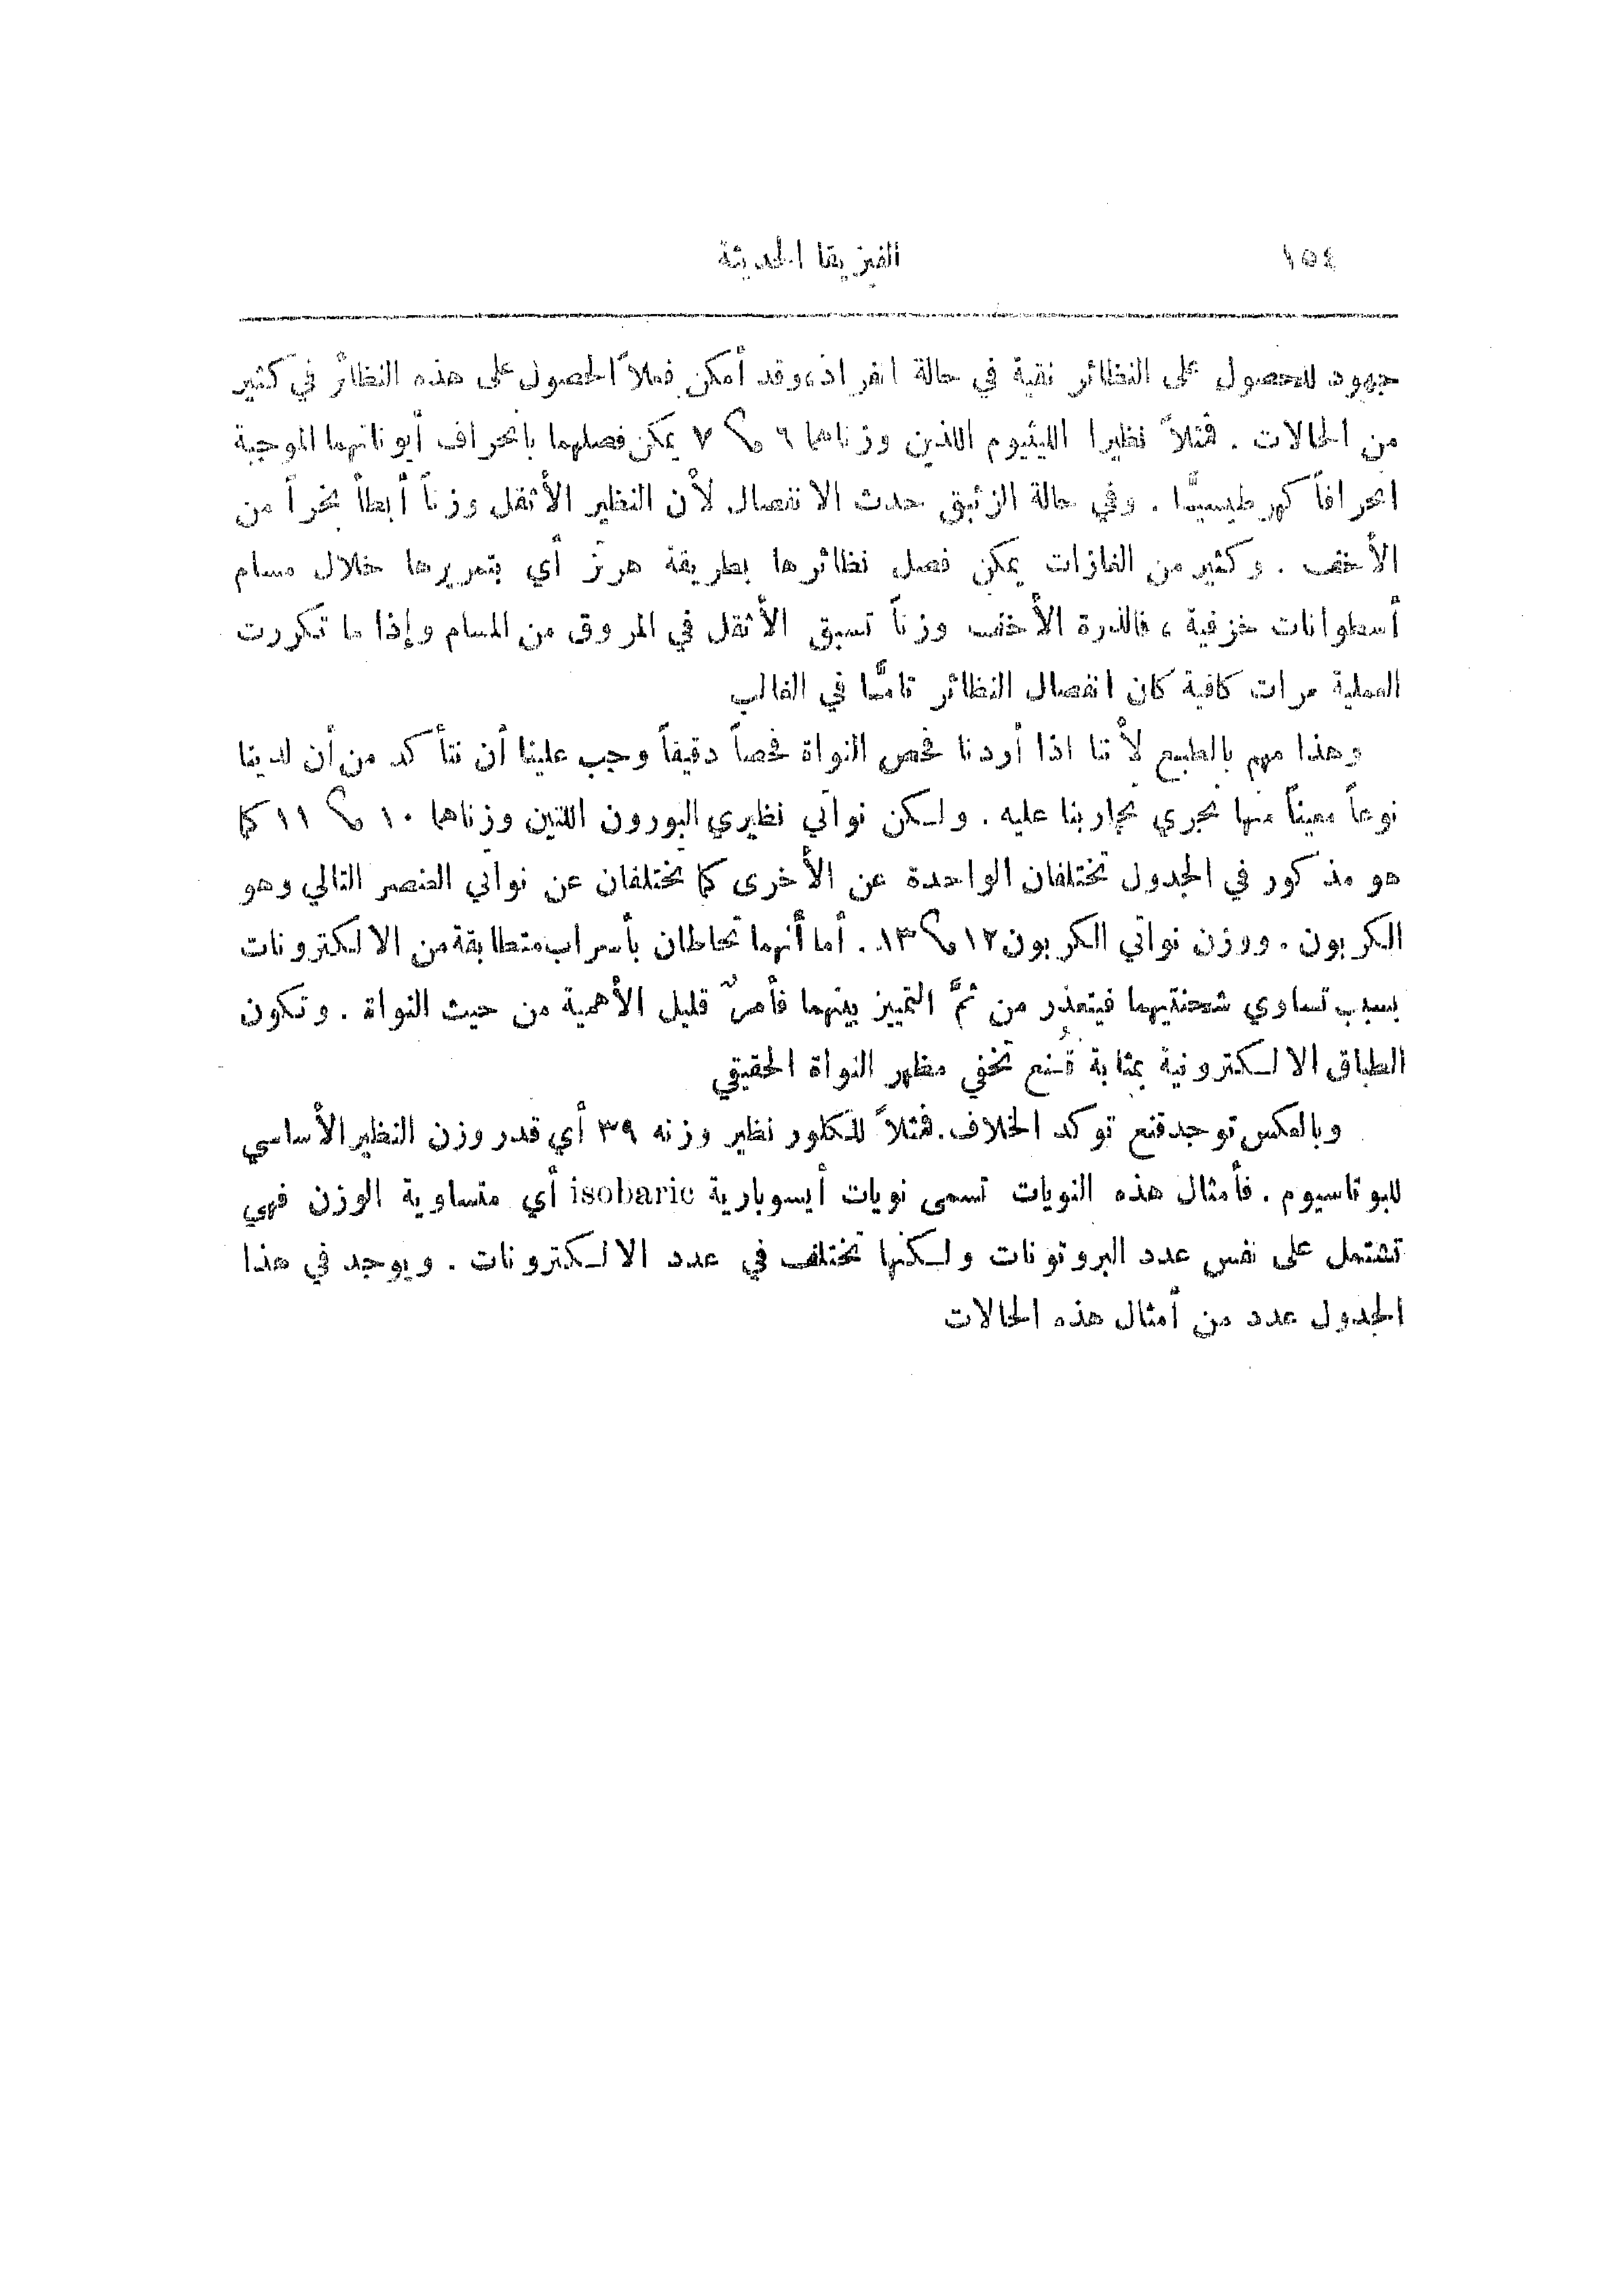 ١٥٤
الفيزيقا الحديثة
جهود للحصول على النظائر نقية في حالة انفراد، وقد أمكن فعلاً الحصول على هذه النظائر في كثير
من الحالات . فمثلاً نظيرا الليثيوم اللذين وزناهما ٦ و ٧ يمكن فصلهما بانحراف أيوناتهما الموجبة
انحرافاً كهرطيسيًّا . وفي حالة الزئبق حدث الانفصال لأن النظير الأثقل وزناً أبطأ بخراً من
الأخف . وكثير من الغازات يمكن فصل نظائرها بطريقة هرتز أي بتمريرها خلال مسام
أسطوانات خزفية ، فالذرة الأخف وزناً تسبق الأثقل في المروق من المسام وإذا ما تكررت
العملية مرات كافية كان انفصال النظائر تامًّا في الغالب
وهذا مهم بالطبع لأننا اذا أردنا فحص النواة فحصاً دقيقاً وجب علينا أن نتأكد من أن لدينا
نوعاً معيناً منها نجري تجاربنا عليه . ولكن نواتي نظيري البورون اللتين وزناهما ١٠ و ١١ كما
هو مذكور في الجدول تختلفان الواحدة عن الأخرى كما تختلفان عن نواتي العنصر التالي وهو
الكربون . ووزن نواتي الكربون ١٢ و ١٣ . أما أنهما تحاطان بأسراب متطابقة من الالكترونات
بسبب تساوي شحنتيهما فيتعذر من ثمَّ التمييز بينهما فأمرٌ قليل الأهمية من حيث النواة . وتكون
الطباق الالكترونية بمثابة قُنع تخفي مظهر النواة الحقيقي
وبالعكس توجد قنع توكد الخلاف . فمثلاً للكلور نظير وزنه ٣٩ أي قدر وزن النظير الأساسي
للبوتاسيوم . فأمثال هذه النويات تسمى نويات أيسوبارية isobaric أي متساوية الوزن فهي
تشتمل على نفس عدد البروتونات ولكنها تختلف في عدد الالكترونات . ويوجد في هذا
الجدول عدد من أمثال هذه الحالات